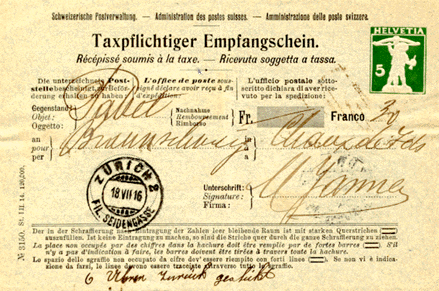 Schweizerische Postverwaltung. – Administration des postes suisses. – Amministrazione delle poste svizzere.
HELVETIA
5
Taxpflichtiger Empfangschein.
Récépissé soumis à la taxe. – Ricevuta soggetta a tassa.
Die unterzeichnete Post-
stelle bescheinigt, zur Beför-
derung erhalten zu haben:
L'office de poste sous-
signé déclare avoir reçu à fin
d'expédition:
L'ufficio postale sotto-
scritto dichiara di aver rice-
vuto per la spedizione:
Gegenstand:
Objet:
Oggetto:
Nachnahme
Remboursement
Rimborso
Fr.
Franco
an
pour
per
Braunschweig
Chaux de Fds
ZÜRICH 2
18 VII 16
FIL. SEIDENGASSE
Unterschrift:
Signature:
Firma:
№ 3150. St. III. 14. 120,000.
Der in der Schraffierung nach Eintragung der Zahlen leer bleibende Raum ist mit starken Querstrichen
auszufüllen. Ist keine Eintragung zu machen, so sind die Striche quer durch die ganze Schraffierung zu ziehen.
La place non occupée par des chiffres dans la hachure doit être remplie par de fortes barres S'il
n'y a pas d'indication à faire, les barres doivent être tirées à travers toute la hachure.
Lo spazio dello sgraffio non occupato da cifre dev'essere riempito con forti linee Se non vi è indicazione
da farsi, le linee devono essere tracciate attraverso tutto lo sgraffio.